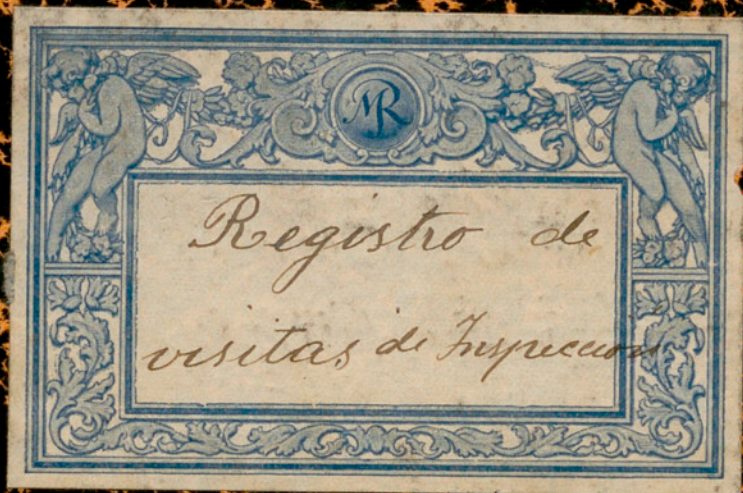 MR
Registro de
visitas de Inspeccion